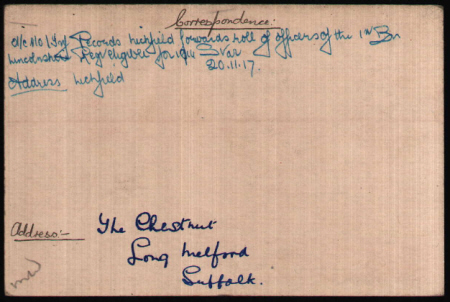 Correspondence:-
O/c No 1 Inf. Records Lichfield forwards roll of officers of the 1st Bn
Lincolnshire Regt eligible for 1914 Star
20.11.17.
Address Lichfield
Address:-
The Chestnut
Long Melford
Suffolk.